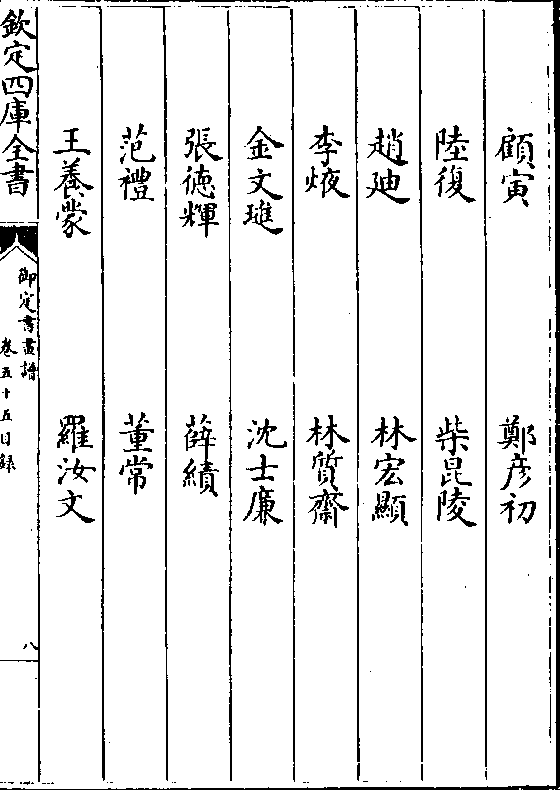 顧寅　鄭彦初
陸復　柴昆陵
趙廸　林宏顯
李㷡　林質齋
金文璡　沈士廉
張徳輝　薛績
范禮　董常
王養蒙　羅汝文
欽定四庫全書
御定書畫譜
卷五十五目録
八